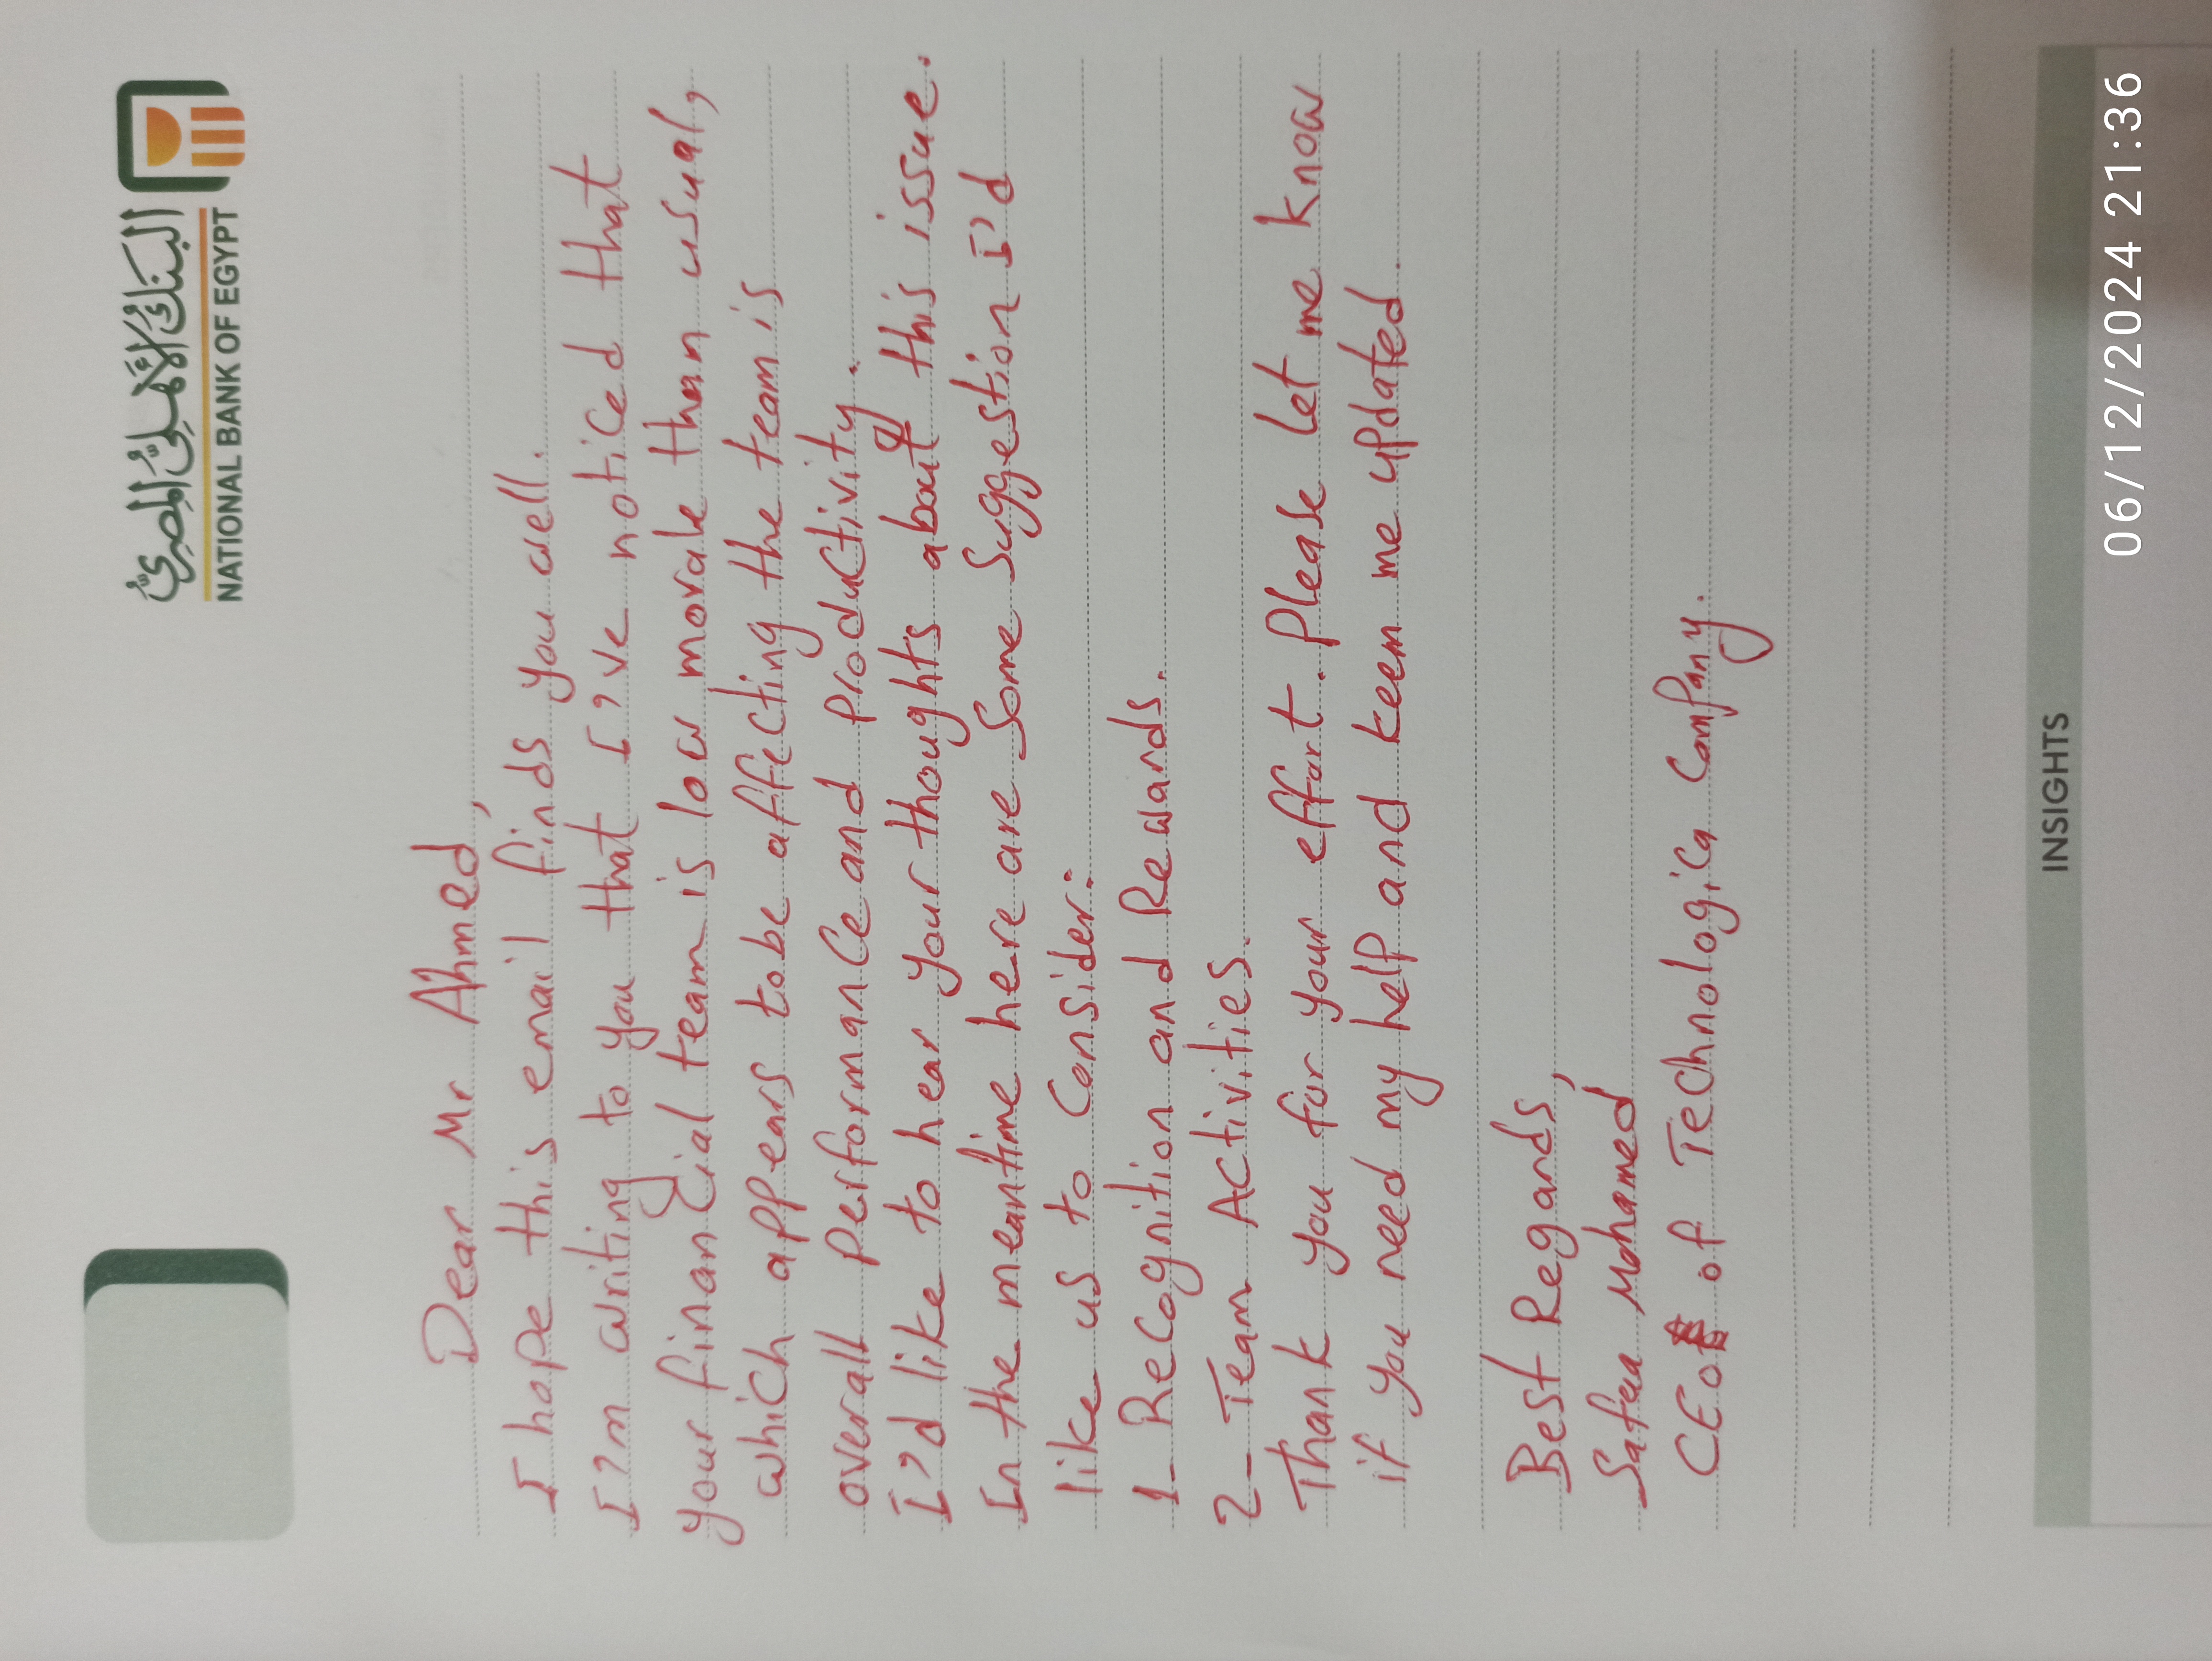 البنك الأهلي المصري
NATIONAL BANK OF EGYPT
Dear Mr Ahmed,
I hope this email finds you well.
I'm writing to you that I've noticed that
your financial team is low morale than usual,
which appears to be affecting the team is
overall performance and productivity.
I'd like to hear your thoughts about this issue.
In the meantime here are some suggestion I'd
like us to consider:
1- Recognition and Rewards.
2- Team Activities.
Thank you for your effort. Please let me know
if you need my help and keem me updated.
Best Regards,
Safaa Mohamed
CEO of Technologica Company.
INSIGHTS
06/12/2024 21:36